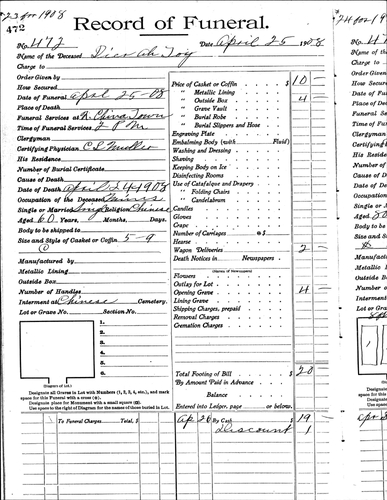 23 for 1908
472
Record of Funeral.
No. 472 Date April 25 1908
Name of the Deceased Dier Ah Toy
Charge to
Order Given by
How Secured
Date of Funeral April 25-08
Place of Death
Funeral Services at China Town
Time of Funeral Services 2 P M.
Clergyman
Certifying Physician C L Muller
His Residence
Number of Burial Certificate
Cause of Death
Date of Death April 24 1908
Occupation of the Deceased
Single or Married Single Religion Chinese
Aged 60 Years, Months, Days.
Body to be shipped to
Size and Style of Casket or Coffin 5-9
Manufactured by
Metallic Lining
Outside Box
Number of Handles
Interment at Chinese Cemetery.
Lot or Grave No. Section No.
1.
2.
3.
4.
5.
6.
(Diagram of Lot.)
Designate all Graves in Lot with Numbers (1, 2, 3, 4, etc.), and mark
space for this Funeral with a cross (+).
Designate place for Monument with a small square (□).
Use space to the right of Diagram for the names of those buried in Lot.
To Funeral Charges Total, $
Price of Casket or Coffin $ 10 —
" Metallic Lining
" Outside Box 4
" Grave Vault
" Burial Robe
" Burial Slippers and Hose
Engraving Plate
Embalming Body (with Fluid)
Washing and Dressing
Shaving
Keeping Body on Ice
Disinfecting Rooms
Use of Catafalque and Drapery
" Folding Chairs
" Candelabrum
Candles
Gloves
Crape
Number of Carriages @ $
Hearse
Wagon Deliveries 2 —
Death Notices in Newspapers
(Names of Newspapers)
Flowers
Outlay for Lot
Opening Grave 4 —
Lining Grave
Shipping Charges, prepaid
Removal Charges
Cremation Charges
Total Footing of Bill $ 20 —
By Amount Paid in Advance
Balance
Entered into Ledger, page or below.
Ap 26 By Cash 19
Discount 1